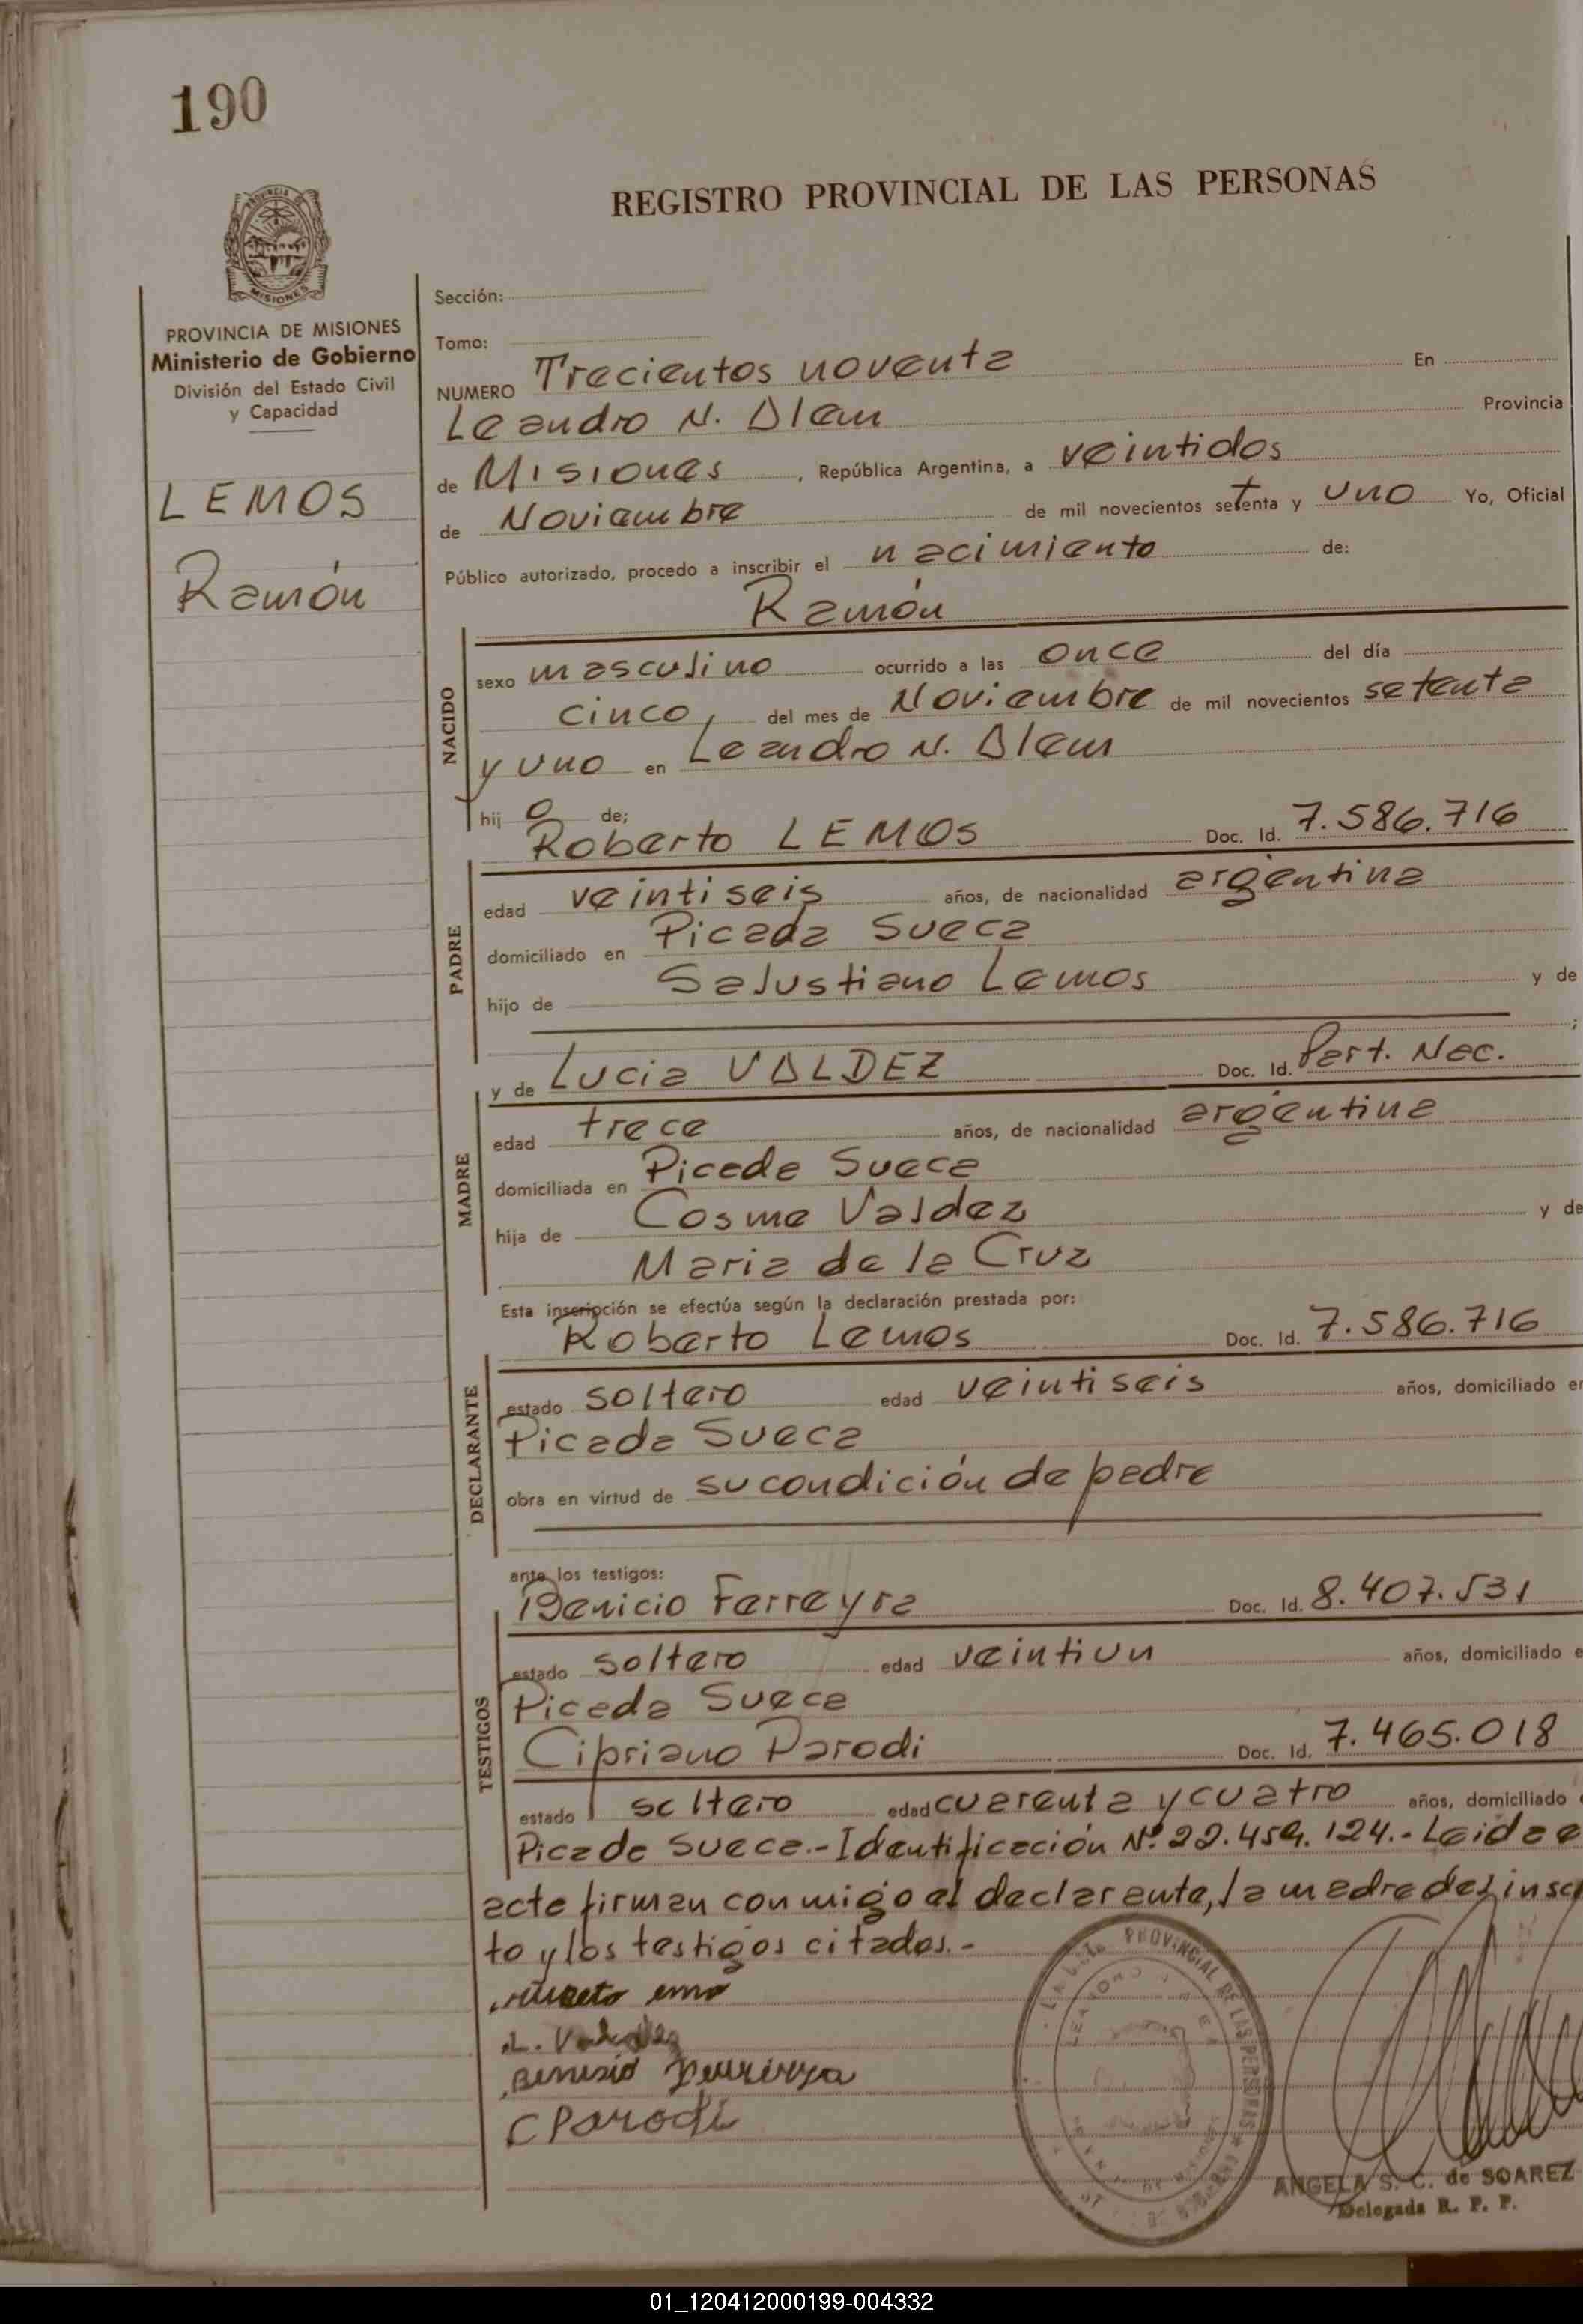 190
REGISTRO PROVINCIAL DE LAS PERSONAS
MISIONES
PROVINCIA DE MISIONES
Ministerio de Gobierno
División del Estado Civil
y Capacidad
LEMOS
Ramón
Sección:
Tomo:
NUMERO Trecientos noventa En
Leandro N. Alem Provincia
de Misiones, República Argentina, a veintidos
de Noviembre de mil novecientos setenta y uno Yo, Oficial
Público autorizado, procedo a inscribir el nacimiento de:
Ramón
NACIDO
sexo masculino ocurrido a las once del día
cinco, del mes de Noviembre de mil novecientos setenta
y uno en Leandro N. Alem
hijo de;
Roberto LEMOS Doc. Id. 7.586.716
PADRE
edad veintiseis años, de nacionalidad argentina
domiciliado en Picada Sueca
hijo de Salustiano Lemos y de
;
y de Lucia VALDEZ Doc. Id. Part. Nac.
MADRE
edad trece años, de nacionalidad argentina
domiciliada en Picada Sueca
hija de Cosme Valdez y de
Maria de la Cruz
Esta inscripción se efectúa según la declaración prestada por:
Roberto Lemos Doc. Id. 7.586.716
DECLARANTE
estado soltero edad veintiseis años, domiciliado en
Picada Sueca
obra en virtud de su condición de padre
ante los testigos:
Benicio Ferreyra Doc. Id. 8.407.531
TESTIGOS
estado soltero edad veintiun años, domiciliado e
Picada Sueca
Cipriano Parodi Doc. Id. 7.465.018
estado soltero edad cuarenta y cuatro años, domiciliado
Picada Sueca.- Identificación Nº 22.459.124.- Leida e
acta firman conmigo el declarante, la madre del insc
to y los testigos citados.-
C Parodi
PROVINCIAL DE LAS PERSONAS
ANGELA S. C. de SOAREZ
Delegada R. P. P.
01_120412000199-004332